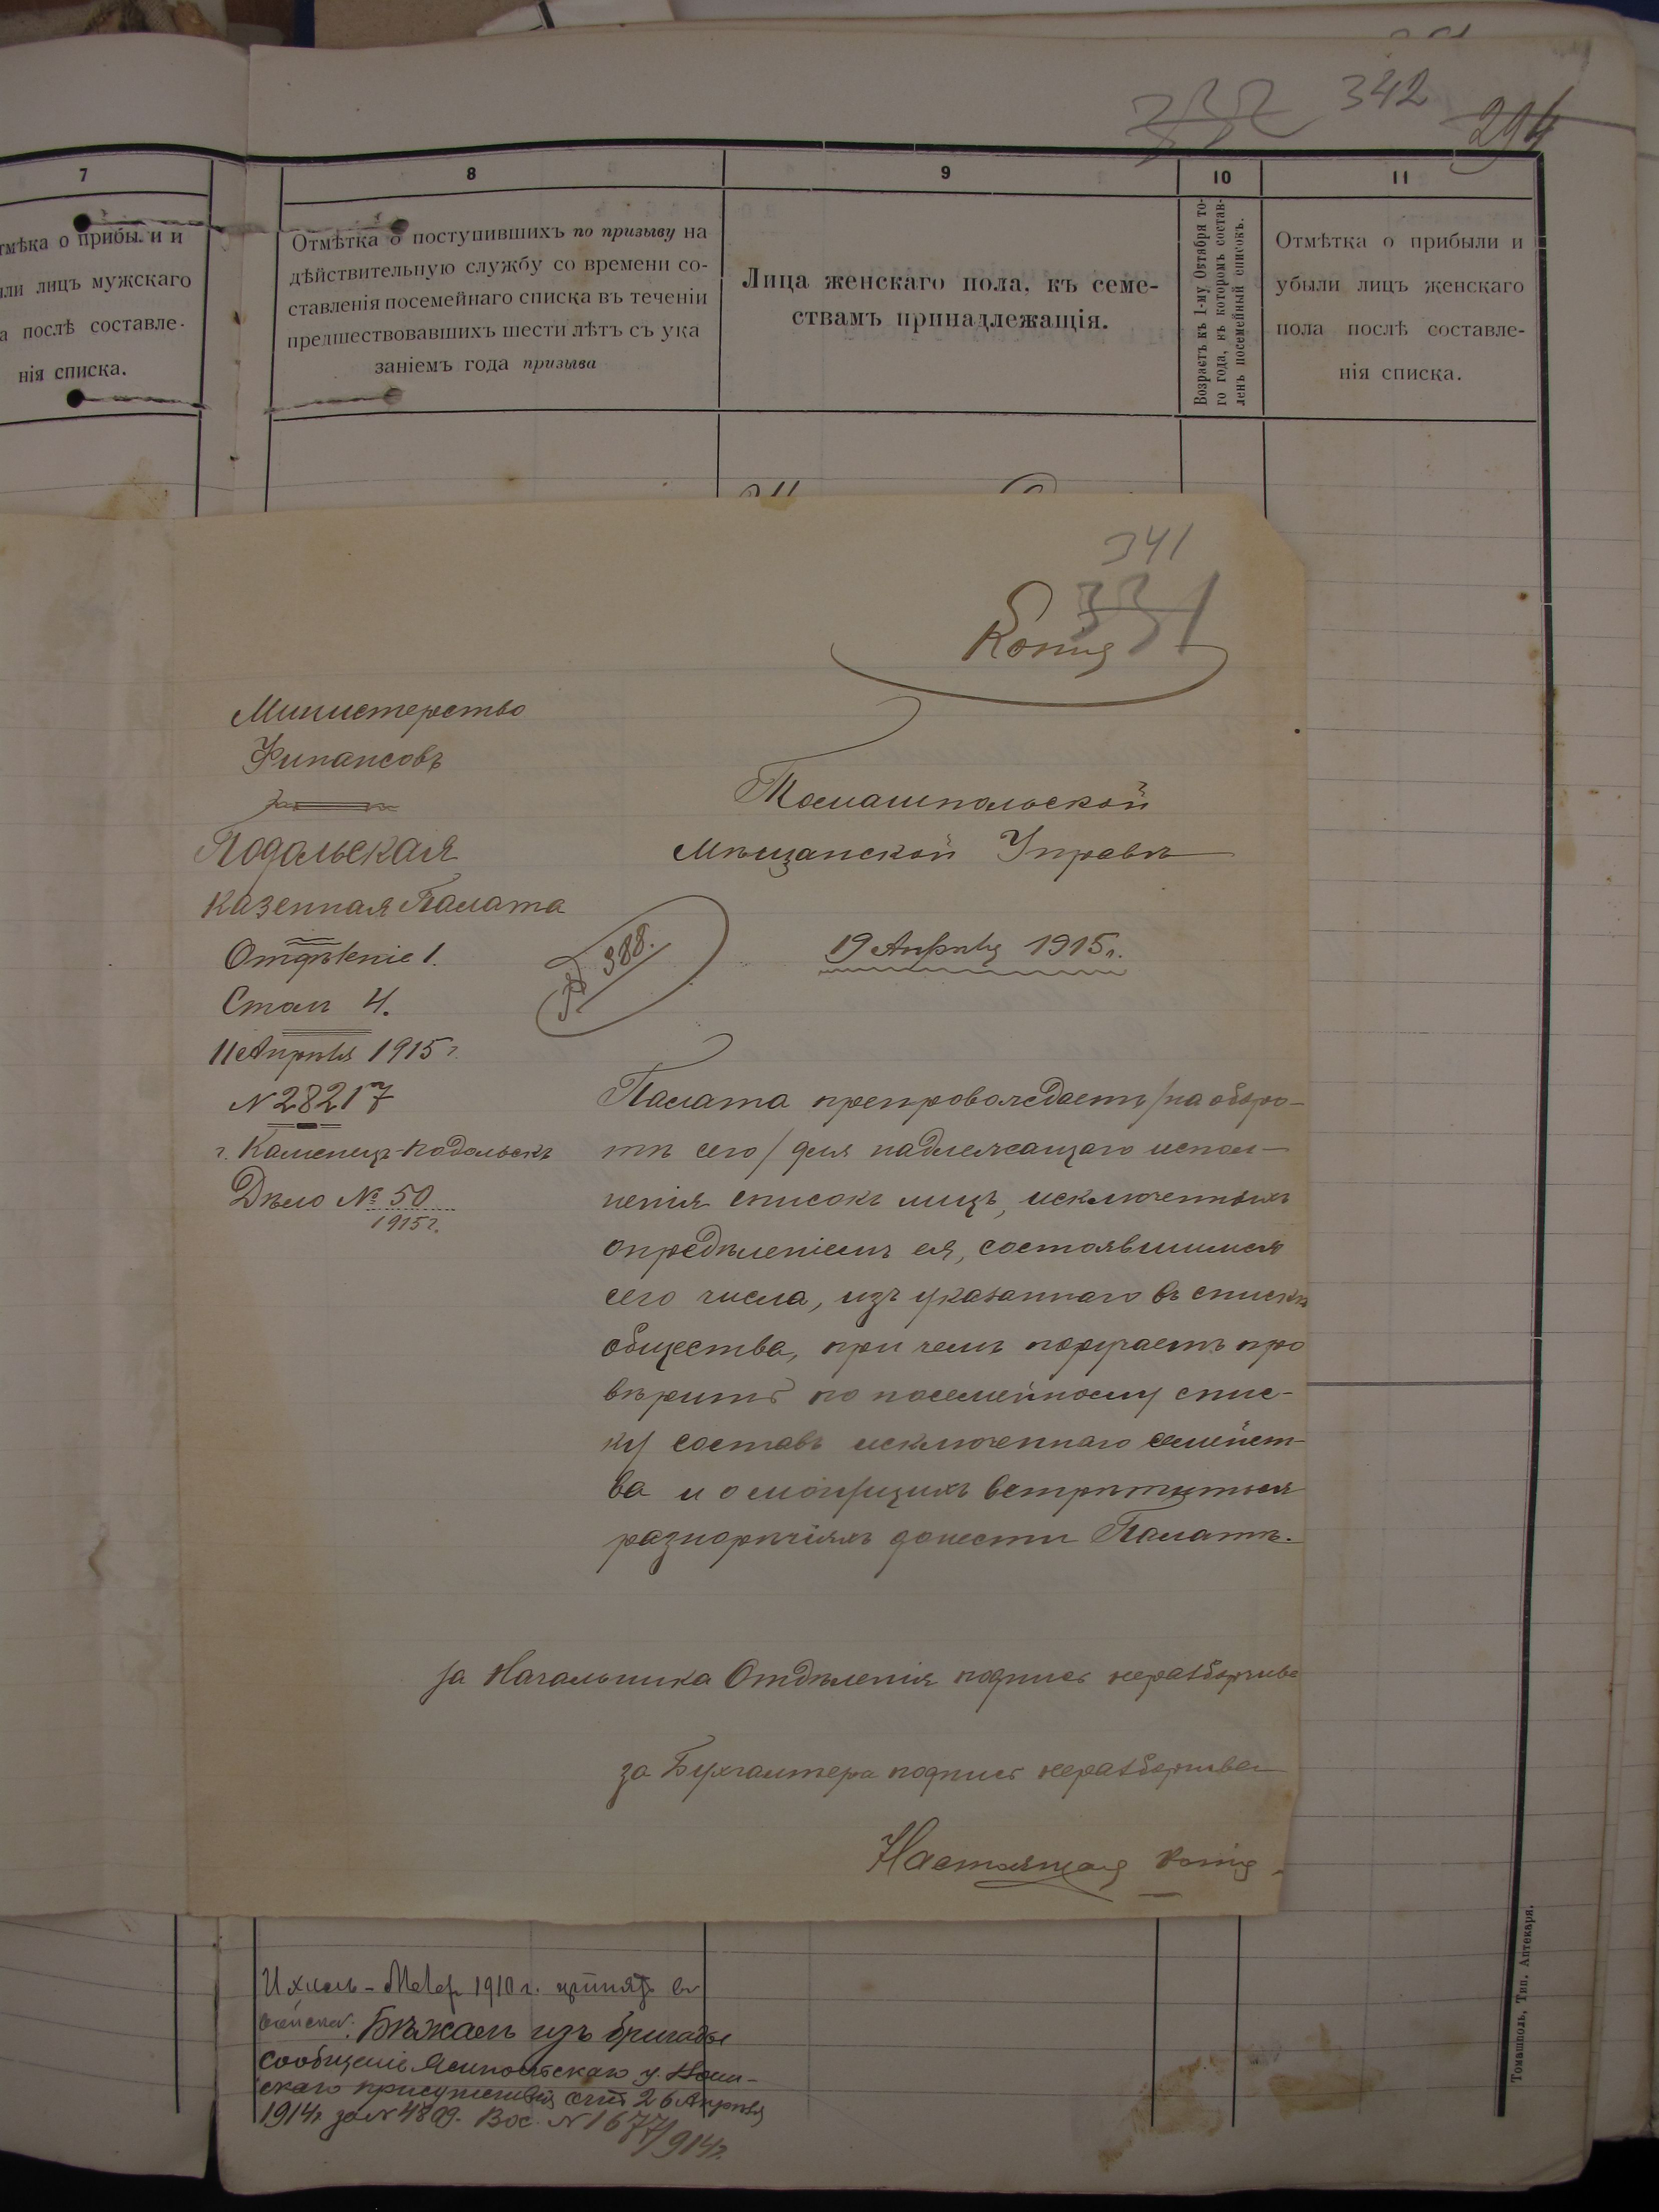 332 342 294
7
8
9
10
11
тмѣка о прибы. и и
ыли лицъ мужскаго
а послѣ составле-
нія списка.
Отмѣтка о поступившихъ по призыву на
дѣйствительную службу со времени со-
ставленія посемейнаго списка въ теченіи
предшествовавшихъ шести лѣтъ съ ука
заніемъ года призыва
Лица женскаго пола, къ семе-
ствамъ принадлежащія.
Возрастъ къ 1-му Октября то-
го года, въ которомъ состав-
ленъ посемейный списокъ.
Отмѣтка о прибыли и
убыли лицъ женскаго
пола послѣ составле-
нія списка.
341
331
Копія
Министерство
Финансовъ
Подольская
Казенная Палата
Отдѣленіе 1.
Столъ 4.
11 Апрѣля 1915 г.
N 28217
г. Каменецъ-Подольскъ
Дѣло № 50
1915 г.
Томашпольской
Мѣщанской Управѣ
388.
19 Апрѣля 1915 г.
Палата препровождаетъ /на оборо-
тѣ сего/ для надлежащаго испол-
ненія списокъ лицъ, исключенныхъ
опредѣленіемъ ея, состоявшимся
сего числа, изъ указаннаго въ спискѣ
общества, при чемъ поручаетъ про
вѣрить по посемейному спис-
ку составъ исключеннаго семейст-
ва и о могущихъ встрѣтиться
разнорѣчіяхъ донести Палатѣ.
За Начальника Отдѣленія подпись неразборчива
за Бухгалтера подпись неразборчива
Настоящая копія
Ихиль-Меер 1910 г. принятъ въ
войска. Бѣжалъ изъ бригады
сообщеніе у. Воин-
скаго присутствія отъ 26 Апрѣля
1914 г за N 4809. Вос. N 1677/914 г.
Томашполь, Тип. Аптекаря.